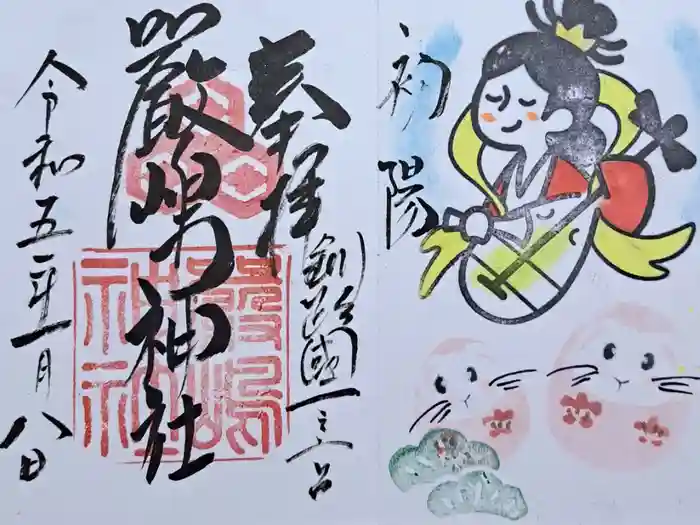 奉拝
釧路國一之宮
嚴嶋神社
嚴嶋
神社
令和五年一月八日
初陽